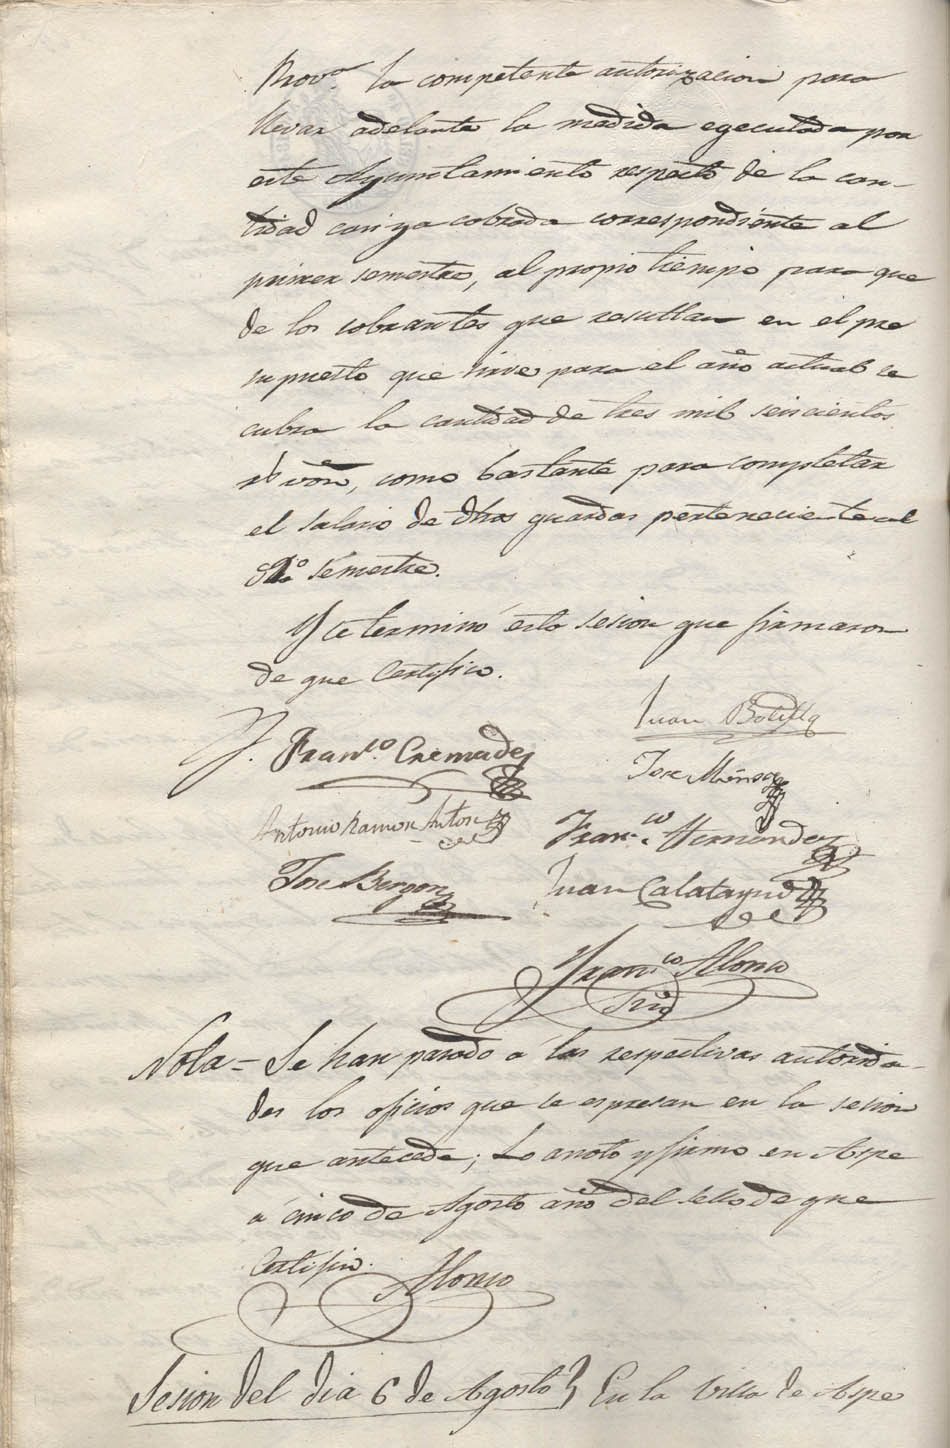 Prova. la competente autorizacion para
llevar adelante la medida egecutada por
este Ayuntamiento respecto de la can-
tidad casi ya cobrada correspondiente al
primer semestre, al propio tiempo para que
de los sobrantes que resultan en el pre
supuesto que sirve para el año actual se
cubra la cantidad de tres mil seiscientos
rs. von, como bastante para completar
el salario de dhos guardas perteneciente al
2o. semestre.
Y se terminó esta sesion que firmaron
de que Certifico.
Juan Botella
J. Franco. Cremades
Jose
Antonio Ramon Anton
Franco. Hernandez
Jose Bergon
Juan Calatayud
Franco. Alonso
Srio
Nota = Se han pasado a las respectivas autorida-
des los oficios que se espresan en la sesion
que antecede; Lo anoto y firmo en Aspe
a cinco de Agosto año del sello de que
Certifico. Alonso
Sesion del dia 6 de Agosto} En la Villa de Aspe